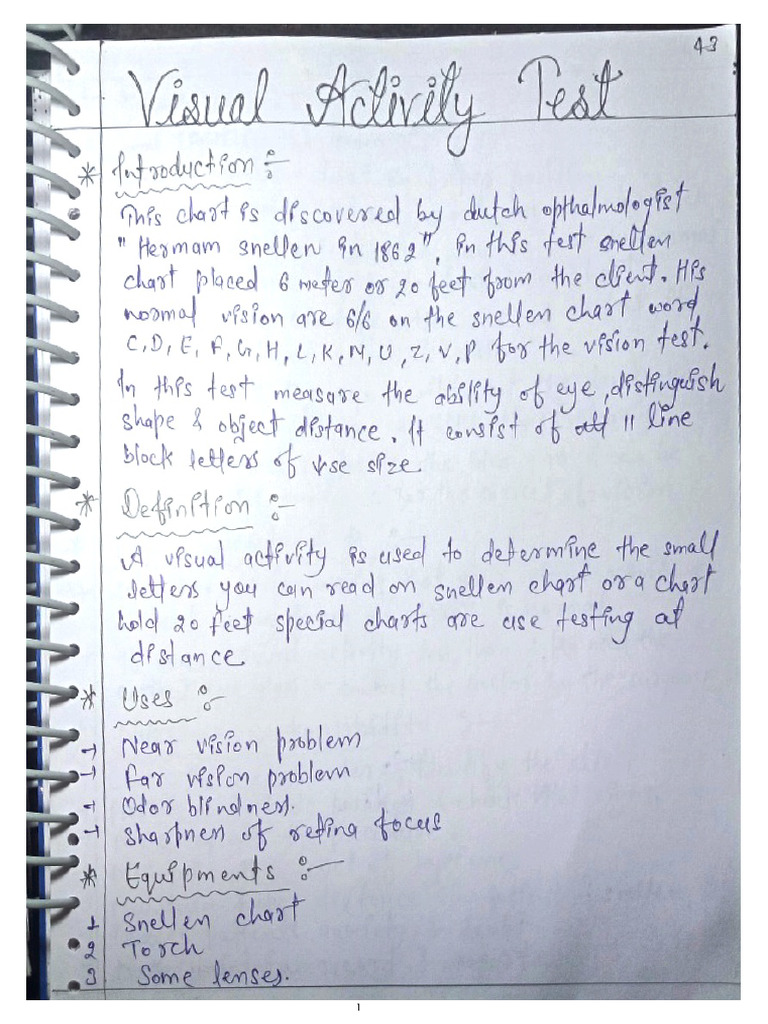 43
Visual Activity Test
* Introduction :-
This chart is discovered by dutch opthalmologist
"Hermam snellen in 1862", in this test snellen
chart placed 6 meter or 20 feet from the client. His
normal vision are 6/6 on the snellen chart word
C, D, E, F, G, H, L, K, N, U, Z, V, P for the vision test.
In this test measure the ability of eye, distinguish
shape & object distance. It consist of 11 line
block letters of size
* Definition :-
A visual activity is used to determine the small
letters you can read on snellen chart or a chart
hold 20 feet special charts are use testing at
distance.
* Uses :-
→ Near vision problem
→ Far vision problem
→ Odor blindness.
→ Sharpness of retina focus
* Equipments :-
1 Snellen chart
2 Torch
3 Some lenses.
1